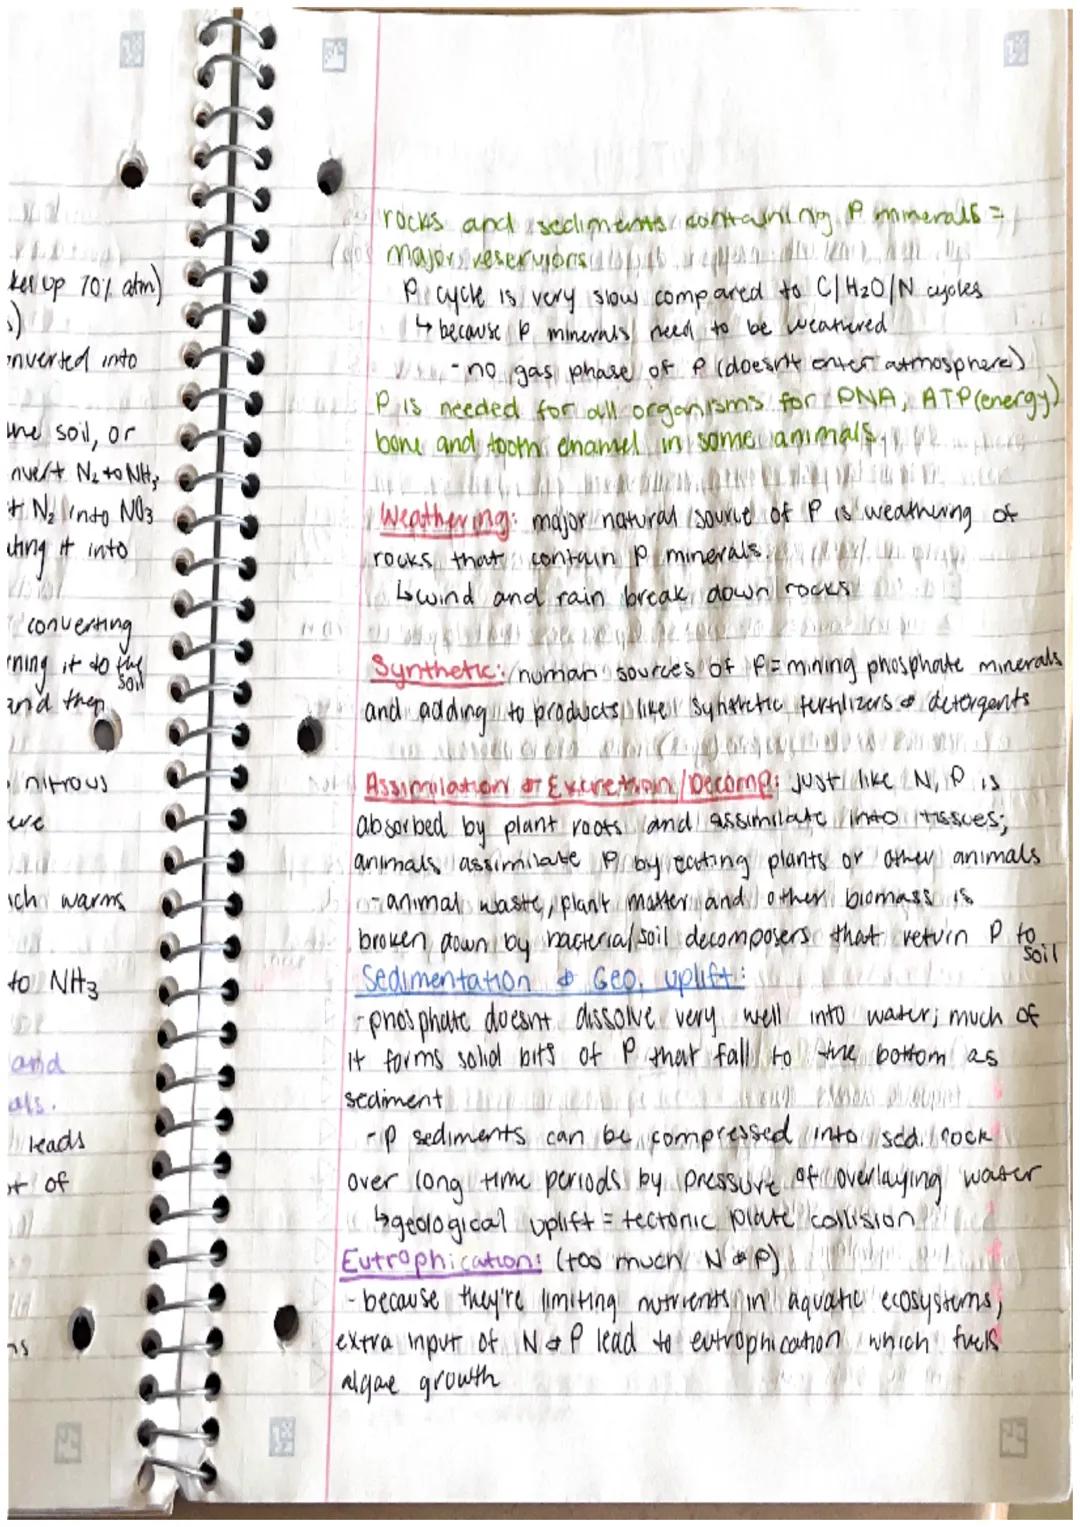 kes up 70% atm)
s)
onverted into
une soil, or
nvert N₂ to NH₃
t N₂ into NO3
ating it into
converting
rning it to the
soil
and then
nitrous
ere
ich warms
to NH3
and
als.
leads
ot of
ns
rocks and sediments containing P minerals =
major reserviors
P cycle is very slow compared to C/H2O/N cycles
↳ because P minerals need to be weathered
- no gas phase of P (doesn't enter atmosphere)
P is needed for all organisms for DNA, ATP (energy)
bone and tooth enamel in some animals
Weathering: major natural source of P is weathering of
rocks that contain P minerals.
↳ wind and rain break down rocks
Synthetic: human sources of P = mining phosphate minerals
and adding to products like synthetic fertilizers & detergents
Assimilation & Excretion/Decomp: just like N, P is
absorbed by plant roots and assimilate into tissues;
animals assimilate P by eating plants or other animals
- animal waste, plant matter and other biomass is
broken down by bacteria/soil decomposers that return P to
soil
Sedimentation & Geo. uplift:
- phosphate doesnt dissolve very well into water; much of
it forms solid bits of P that fall to the bottom as
sediment
- P sediments can be compressed into sed. rock
over long time periods by pressure of overlaying water
↳ geological uplift = tectonic plate collision
Eutrophication: (too much N & P)
- because they're limiting nutrients in aquatic ecosystems,
extra input of N & P lead to eutrophication which fuels
algae growth